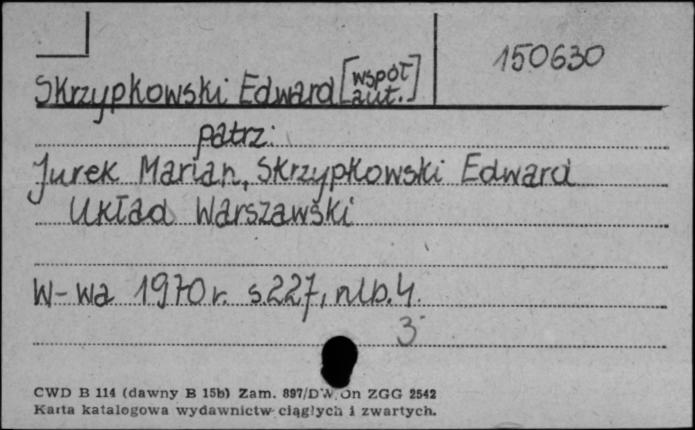 150630
Skrzypkowski Edward [współaut.]
patrz:
Jurek Marian, Skrzypkowski Edward
Układ Warszawski
W-wa 1970 r. s. 227, nlb. 4.
3
CWD B 114 (dawny B 15b) Zam. 897/DW/On ZGG 2542
Karta katalogowa wydawnictw ciągłych i zwartych.